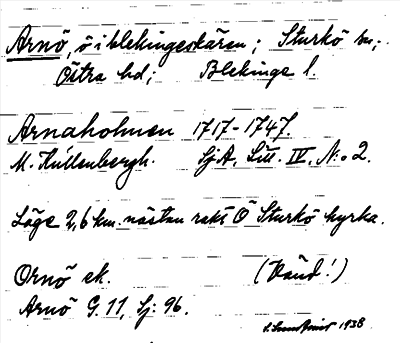 Arnö, ö i blekingeskären; Sturkö sn;
Östra hd; Blekinge l.
Arnaholmen 1717-1747.
M. Küllenbergh. SjA, Litt. IV, N:o 2.
Läge 2,6 km. nästan rakt Ö Sturkö kyrka.
Ornö ek. (Vänd!)
Arnö G. 11, Sj: 96.
1938